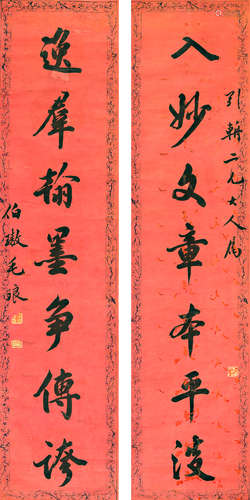 引耕二兄大人属
入妙文章本平淡
逸羣翰墨争傳誇
伯墩毛琅